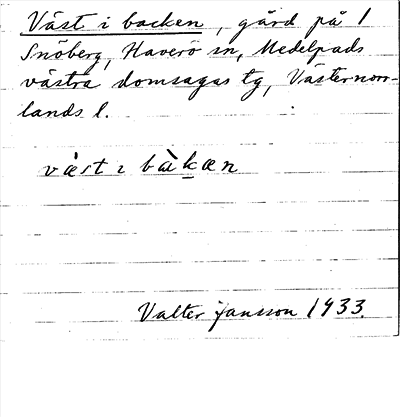 Väst i backen, gård på 1
Snöberg, Haverö sn, Medelpads
västra domsagas tg, Västernorr-
lands l.
væ̀st ı bæ̀kæn
Valter Jansson 1933.